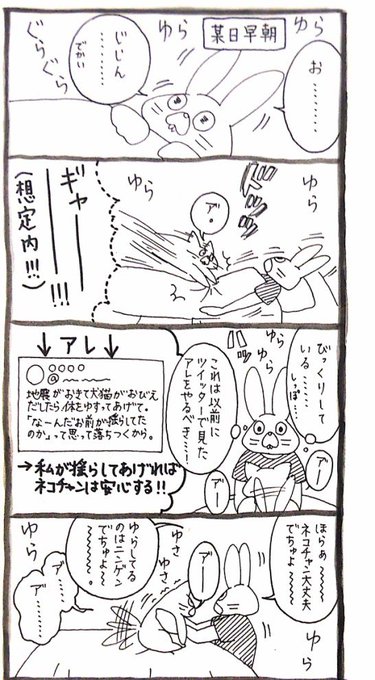 某日早朝
お………
ゆら
ゆら
じしん
………
でかい
ぐらぐら
ゆら
ドドドッ
ゆら
ア。
ギャーーー!!!
(想定内!!!)
びっくりして
いる…しっぽ…
ゆら
ゆら
これは以前に
ツイッターで見た
アレをやるべき…!
アー
アー
↓アレ↓
○○○○
@〜〜
地震がおきて犬猫がおびえ
だしたら体をゆすってあげて。
「なーんだお前が揺らしてた
のか」って思って落ちつくから。
→私が揺らしてあげれば
ネコチャンは安心する!!
ほらぁ〜〜
ネコチャン大丈夫
でちゅよ〜
ゆら
アー
ゆさ
ゆさ
ゆらしてる
のはニンゲン
でちゅよ〜
〜〜〜〜。
ゆら
ア……
ア……